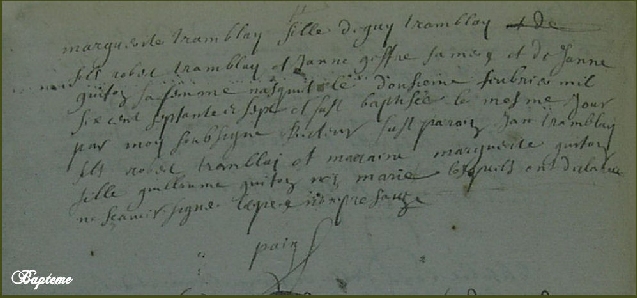 marguerite tramblay fille de guy tramblay et de
filz robert tramblay et Janne geffre sa mere et de Janne
guiton sa femme nasquit le dousieme feubrier mil
six cent septante et sept et fust baptisée le mesme jour
par moy soubsigne Recteur fust parain Jan tramblay
filz robert tramblay et maraine marguerite guiton
fille guillaume guiton marie lesquels ont declaré
ne scavoir signer le pere
Bapteme